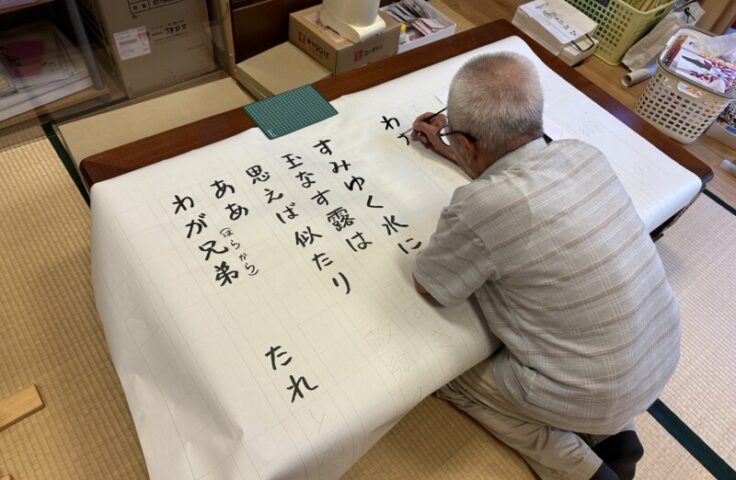 わ
すみゆく水に
玉なす露は
思えば似たり
ああ
わが兄弟
(はらから)
たれ
ユーキャン